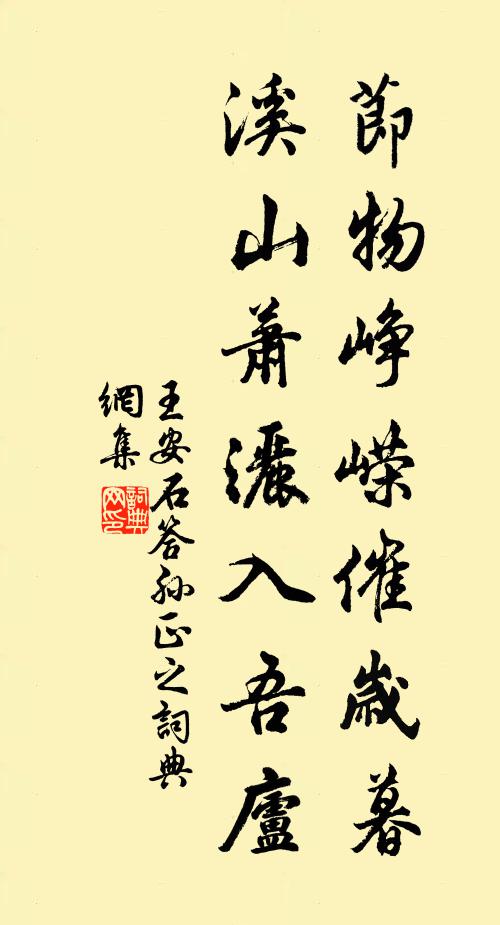 節物崢嶸催歲暮
溪山蕭灑入吾廬
王安石答孫正之詞典
網集
詞典
网印